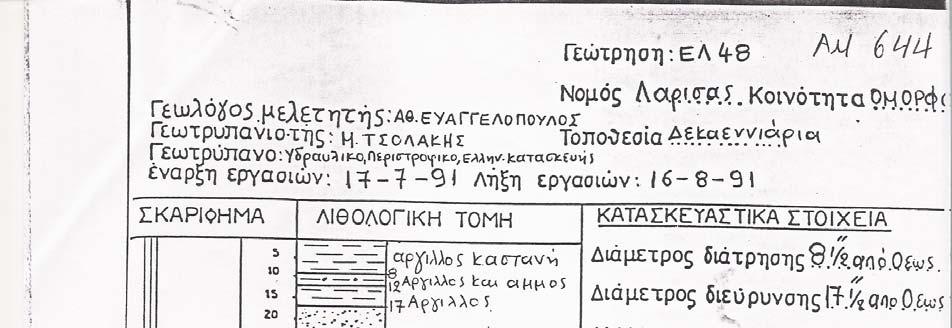 Γεώτρηση: ΕΛ 48 ΑΜ 644
Νομός Λαρισας. Κοινότητα ΟΜΟΡΦ
Γεωλόγος μελετητής: ΑΘ. ΕΥΑΓΓΕΛΟΠΟΥΛΟΣ
Γεωτρυπανιστής: Μ. ΤΣΟΛΑΚΗΣ Τοποθεσία Δεκαεννιάρια
Γεωτρύπανο: Υδραυλικο, Περιστροφικο, Ελλην. κατασκευής
έναρξη εργασιών: 17-7-91 Λήξη εργασιών: 16-8-91
ΣΚΑΡΙΦΗΜΑ ΛΙΘΟΛΟΓΙΚΗ ΤΟΜΗ ΚΑΤΑΣΚΕΥΑΣΤΙΚΑ ΣΤΟΙΧΕΙΑ
5 αργιλλος καστανή
Διάμετρος διάτρησης 8 1/2" απο 0 εως
10 8
12 Αργιλλος και αμμος
15 17 Αργιλλος
Διάμετρος διεύρυνσης 17 1/2" απο 0 εως
20